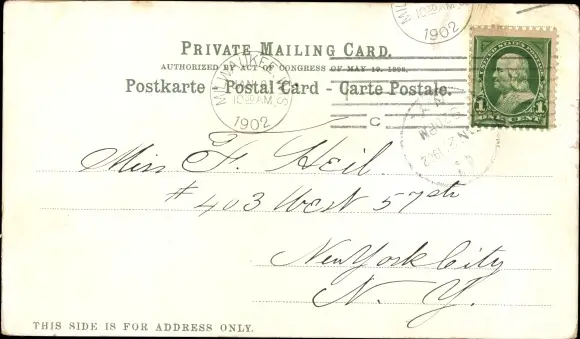 PRIVATE MAILING CARD.
AUTHORIZED BY ACT OF CONGRESS OF MAY 19, 1898.
Postkarte - Postal Card - Carte Postale.
MILWAUKEE, WIS
1030 AM
1902
1902
C
1 1
ONE CENT
Miss F. Heil
# 403 West 57th
New York City
N. Y.
THIS SIDE IS FOR ADDRESS ONLY.